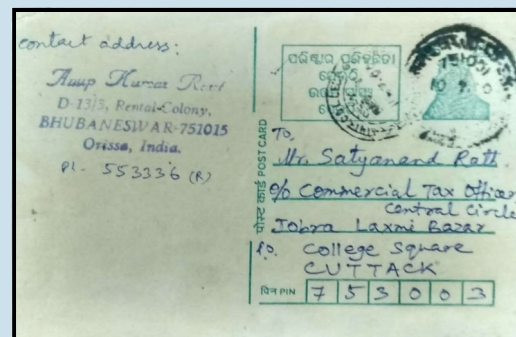 contact address:
Anup Kumar
D-13/3, Rental-Colony,
BHUBANESWAR-751015
Orissa, India.
Ph- 553336 (R)
ପରିଷ୍କାର
POST CARD
पोस्ट कार्ड
751001
To,
Mr. Satyanand Rath
c/o Commercial Tax Officer
Central Circle
Jobra Laxmi Bazar
P.O. College Square
CUTTACK
पिन PIN 753003